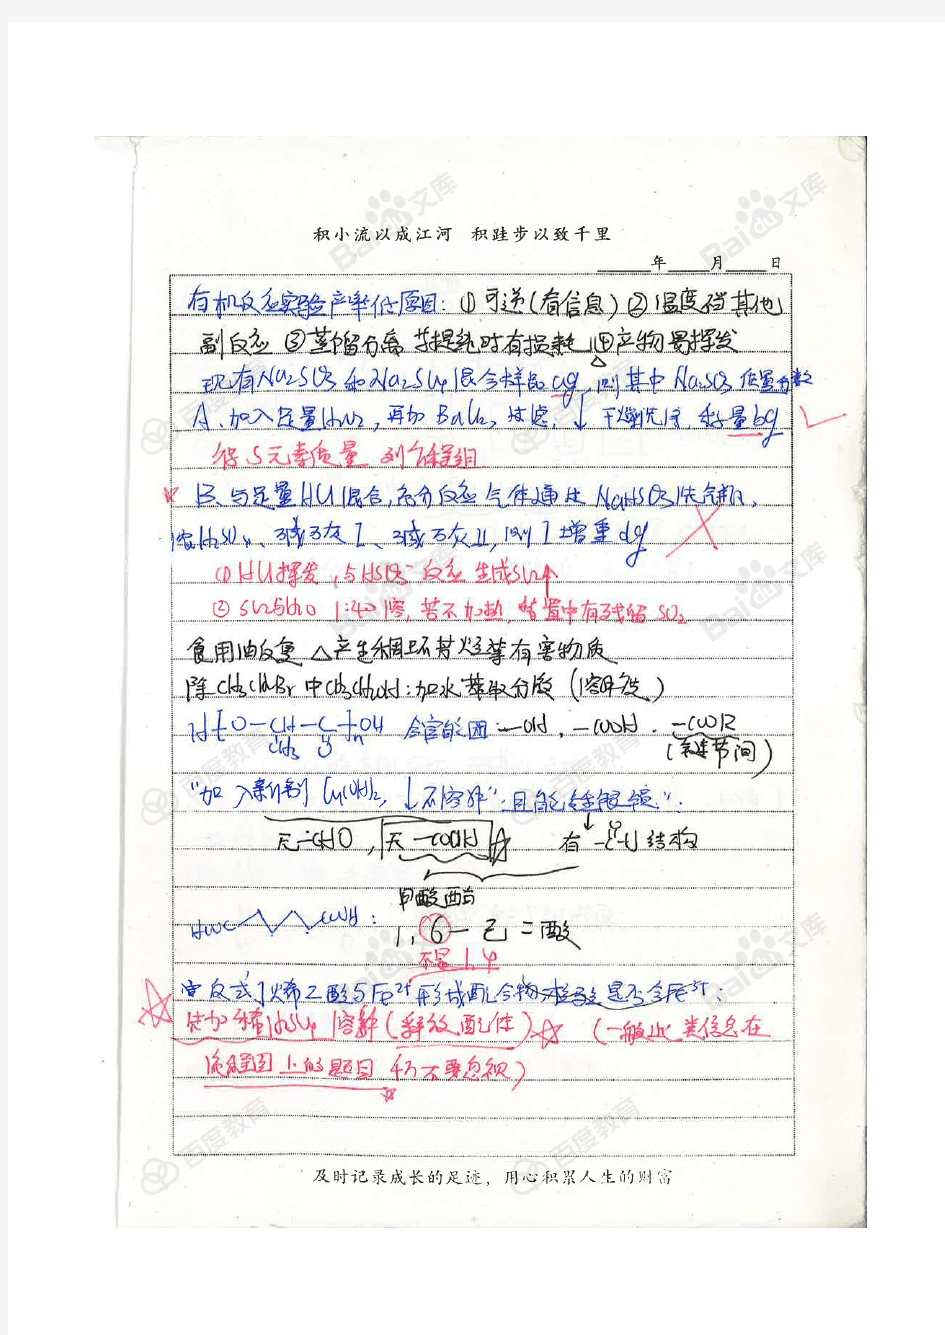 积小流以成江河 积跬步以致千里
年 月 日
有机反应实验产率低原因：①可逆（看信息）②温度 其他
副反应 ③蒸馏分离、提纯时有损耗 ④产物易挥发
现有Na2SO3和Na2SO4混合样品ag，则其中Na2SO3质量分数
A、加入足量HNO3，再加BaCl2，过滤，↓干燥洗涤，称量bg
S元素质量 列方程组
B、与足量HCl混合，充分反应 气体通过NaHSO3洗气瓶、
浓H2SO4、碱石灰I、碱石灰II，则I增重dg
①HCl挥发，与HSO3⁻反应生成SO2↑
②SO2与H2O 1:40溶，若不加热，装置中有残留SO2
食用油反复△产生稠环芳烃等有害物质
除CH3CH2Br中CH3CH2OH：加水萃取分液（溶解度）
H[O-CH-C]OH 含官能团-OH，-COOH，-COOR
CH3 O n （链节间）
“加入新制Cu(OH)2，↓不溶解”；且能银镜”.
无-CHO，无-COOH 有 结构
甲酸酯
HOOC COOH：1,6-己二酸
不是1,4
富反式丁烯二酸与Fe2+形成配合物 是否含Fe3+：
先加稀H2SO4溶解（释放配体）（一般此类信息在
流程图上的题目 不要忽视）
及时记录成长的足迹，用心积累人生的财富
Baidu文库
百度教育